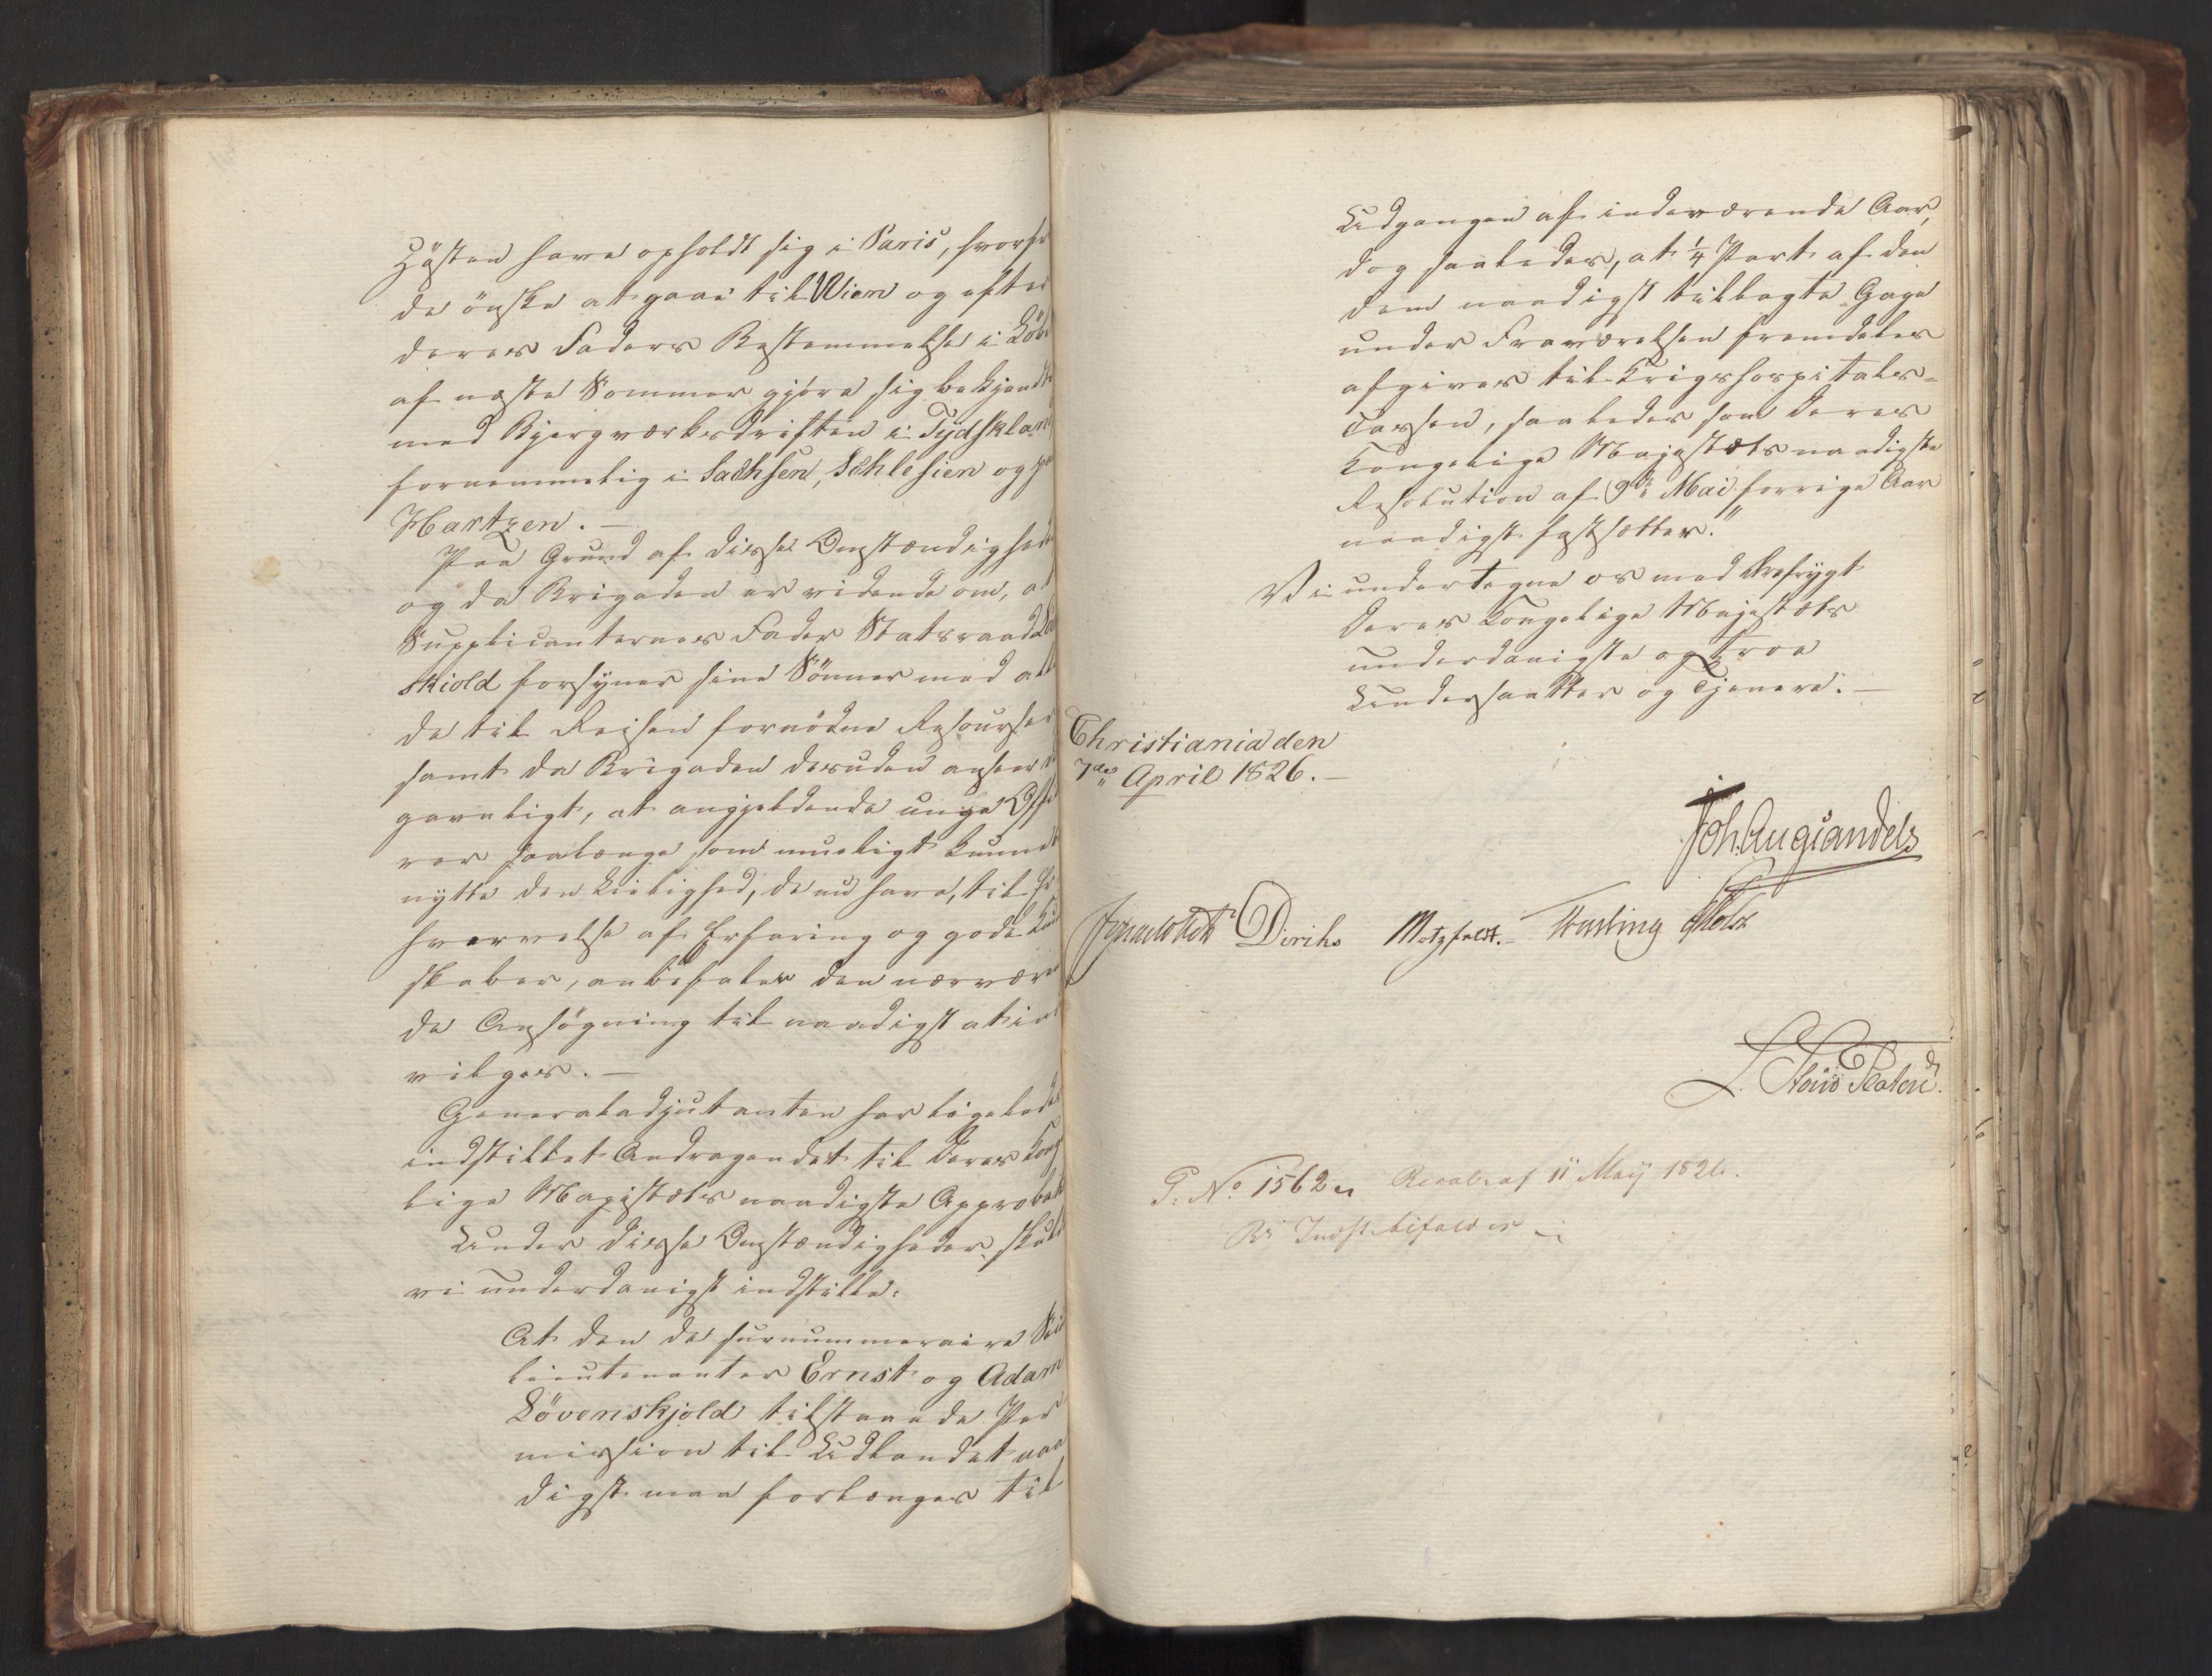 Hösten have opholdt sig i Paris, hvorfra
de önske at gaae til Wien og efter
deres Faders Bestemmelse i Löbe
af næste Sommer gjöre sig bekjendte
med Bjergværksdriften i Tydskland
fornemmelig i Sachsen, Schlesien og paa
Hartzen. —
Paa Grund af disse Omstændigheder
og da Brigaden er vidende om, at
Supplicanternes Fader Statsraad Löven
skiold forsyner sine Sönner med alle
de til Reisen fornödne Resourser
samt da Brigaden desuden anseer det
gavnligt, at angjeldende unge Offi
rer saalænge som mueligt kunne be
nytte den Leilighed, de nu have, til Er
hvervelse af Erfaring og gode Kund
skaber, anbefaler den nærværen
de Ansögning til naadigst at ind
vilges. —
Generaladjutanten har ligeledes
indstillet Andragendet til Deres Konge
lige Majestæts naadigste Approbation
Under disse Omstændigheder skulle
vi underdanigst indstille:
At den de surnummeraire Second
lieutenanter Ernst og Adam
Lövenskjold tilstaaede Per
mission til Udlandet naa
digst maa forlænges til
Udgangen af indeværende Aar,
dog saaledes, at ¼ Part af den
dem naadigst tillagte Gage
under Fraværelsen fremdeles
afgives til Krigshospitals-
Cassen, saaledes som Deres
Kongelige Majestæts naadigste
Resolution af 9de Mai forrige Aar
naadigst fastsætter."
Vi undertegne os med Ærefrygt
Deres Kongelige Majestæts
underdanigste og troe
Undersaatter og Tjenere. —
Christiania den
7de April 1826. —
Joh. Aug Sandels
Diriks Motzfeldt. Fasting Holst
P. No 1562. Resol. af 11 Maij 1826.
Indst. bifaldes